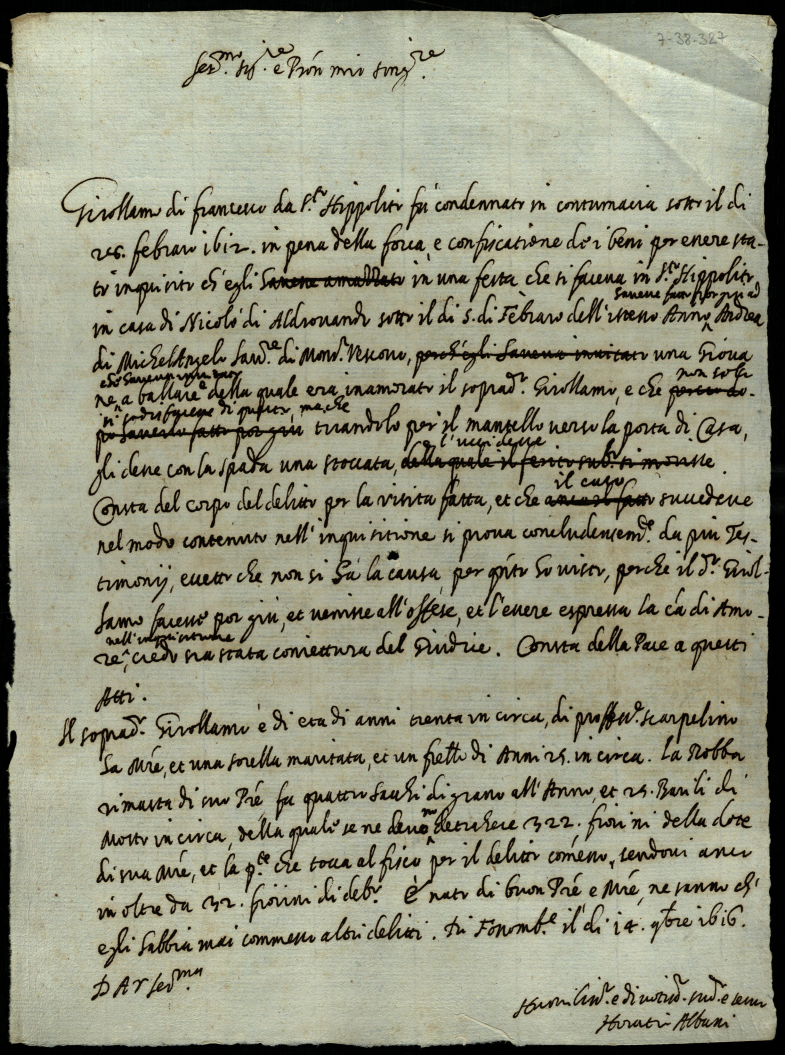 7-38-327
Ser.mo Sig.re e Pron mio sing.re
Girollamo di francesco da S.to Hippolito fù condennato in contumacia sotto il di
26. febraro 1612. in pena della forca, e confiscatione de i beni per essere sta-
to inquisito ch'egli havesse amazzato in una festa che si faceva in S.to Hippolito
havesse fatto por giù ad
in casa di Nicolò di Aldrovando sotto il di 5. di Febraro dell'istesso Anno Andrea
di Michel'Angelo Lav.re di Mons.r Vescovo, perch'egli haveva invitato una Giova
che haveva invitato non solo
ne, a ballare della quale era inamorato il soprad.o Girollamo, e che
si sodisfacesse di questo, ma che
po haverlo fatto por giù tirandolo per il mantello verso la porta di Casa,
l'uccidesse
gli desse con la spada una stoccata, della quale il ferito sub.o si morisse
il caso
Consta del corpo del delitto per la visita fatta, et che succedesse
nel modo contenuto nell'inquisitione si prova concludentem.e da più Tes-
timonij, eccetto che non si hà la causa, per q.nto hò visto, perche il d.o Girol-
lamo facesse por giù, et venisse all'offese, et l'essere espressa la cã di Amo-
nell'inquisitione
re, credo sia stata coniettura del Giudice. Consta della Pace a questi
Atti.
Il soprad.o Girollamo è di età di anni trenta in circa, di profess.e scarpelino
ha Mre, et una sorella maritata, et un frello di Anni 25. in circa. La Robba
rimasta di suo Pre fa quattro sacchi di grano all'Anno, et 25. Barili di
Mosto in circa, della quale se ne devono detrahere 322. fiorini della dote
di sua Mre, et la p.te che tocca al fisco per il delitto comesso, sendovi anco
in oltre da 32. fiorini di deb.o È nato di buon Pre e Mre, ne sanno ch'
egli habbia mai commesso altri delitti. Di Fossomb.e il di 14. 9bre 1616.
D A V Ser.ma
Humiliss.o e divotiss.o sud.o e servo
Horatio Albani